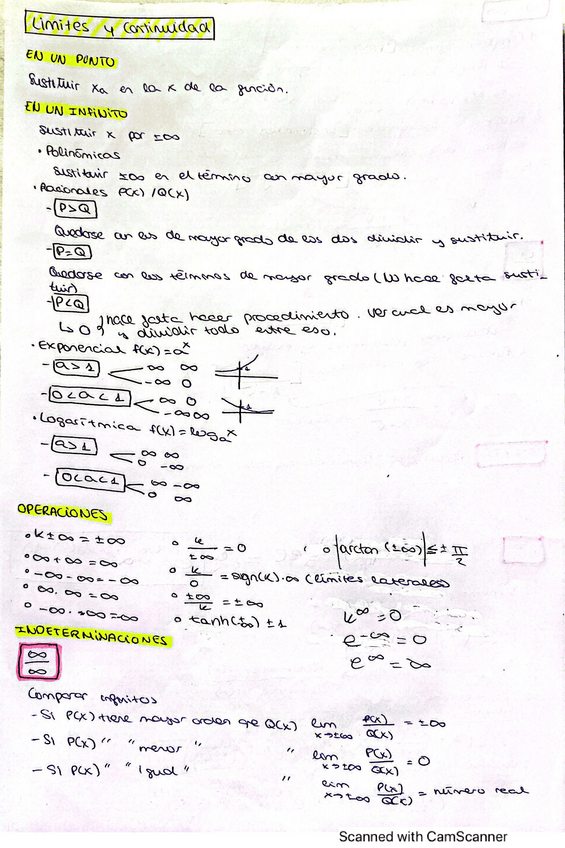 Límites y continuidad
EN UN PUNTO
Sustituir xₐ en la x de la función.
EN UN INFINITO
Sustituir x por ±∞
• Polinómicas
Sustituir ±∞ en el término con mayor grado.
• Racionales P(x) / Q(x)
- P>Q
Quedarse con los de mayor grado de los dos dividir y sustituir.
- P=Q
Quedarse con los términos de mayor grado (No hace falta susti-
tuir)
- P<Q
↳ 0 } hace falta hacer procedimiento. Ver cual es mayor
y dividir todo entre eso.
• Exponencial f(x) = aˣ
- a>1 < ∞ ∞
-∞ 0
- 0<a<1 < ∞ 0
-∞ ∞
• Logarítmica f(x) = logₐˣ
- a>1 < ∞ ∞
0 -∞
- 0<a<1 < ∞ -∞
0 ∞
OPERACIONES
• k ± ∞ = ±∞
• ∞ + ∞ = ∞
• -∞ - ∞ = -∞
• ∞ . ∞ = ∞
• -∞ . +∞ = -∞
• k/±∞ = 0
• k/0 = sign(k).∞ (límites laterales)
• ±∞/k = ±∞
• tanh(±∞) ±1
• |arctan (±∞)| ≤ ± π/2
k^∞ = 0
e^-∞ = 0
e^∞ = ∞
INDETERMINACIONES
∞/∞
Comparar infinitos
- Si P(x) tiene mayor orden que Q(x) lim x→±∞ P(x)/Q(x) = ±∞
- Si P(x) " " menor " " lim x→±∞ P(x)/Q(x) = 0
- Si P(x) " " Igual " " lim x→±∞ P(x)/Q(x) = número real
Scanned with CamScanner